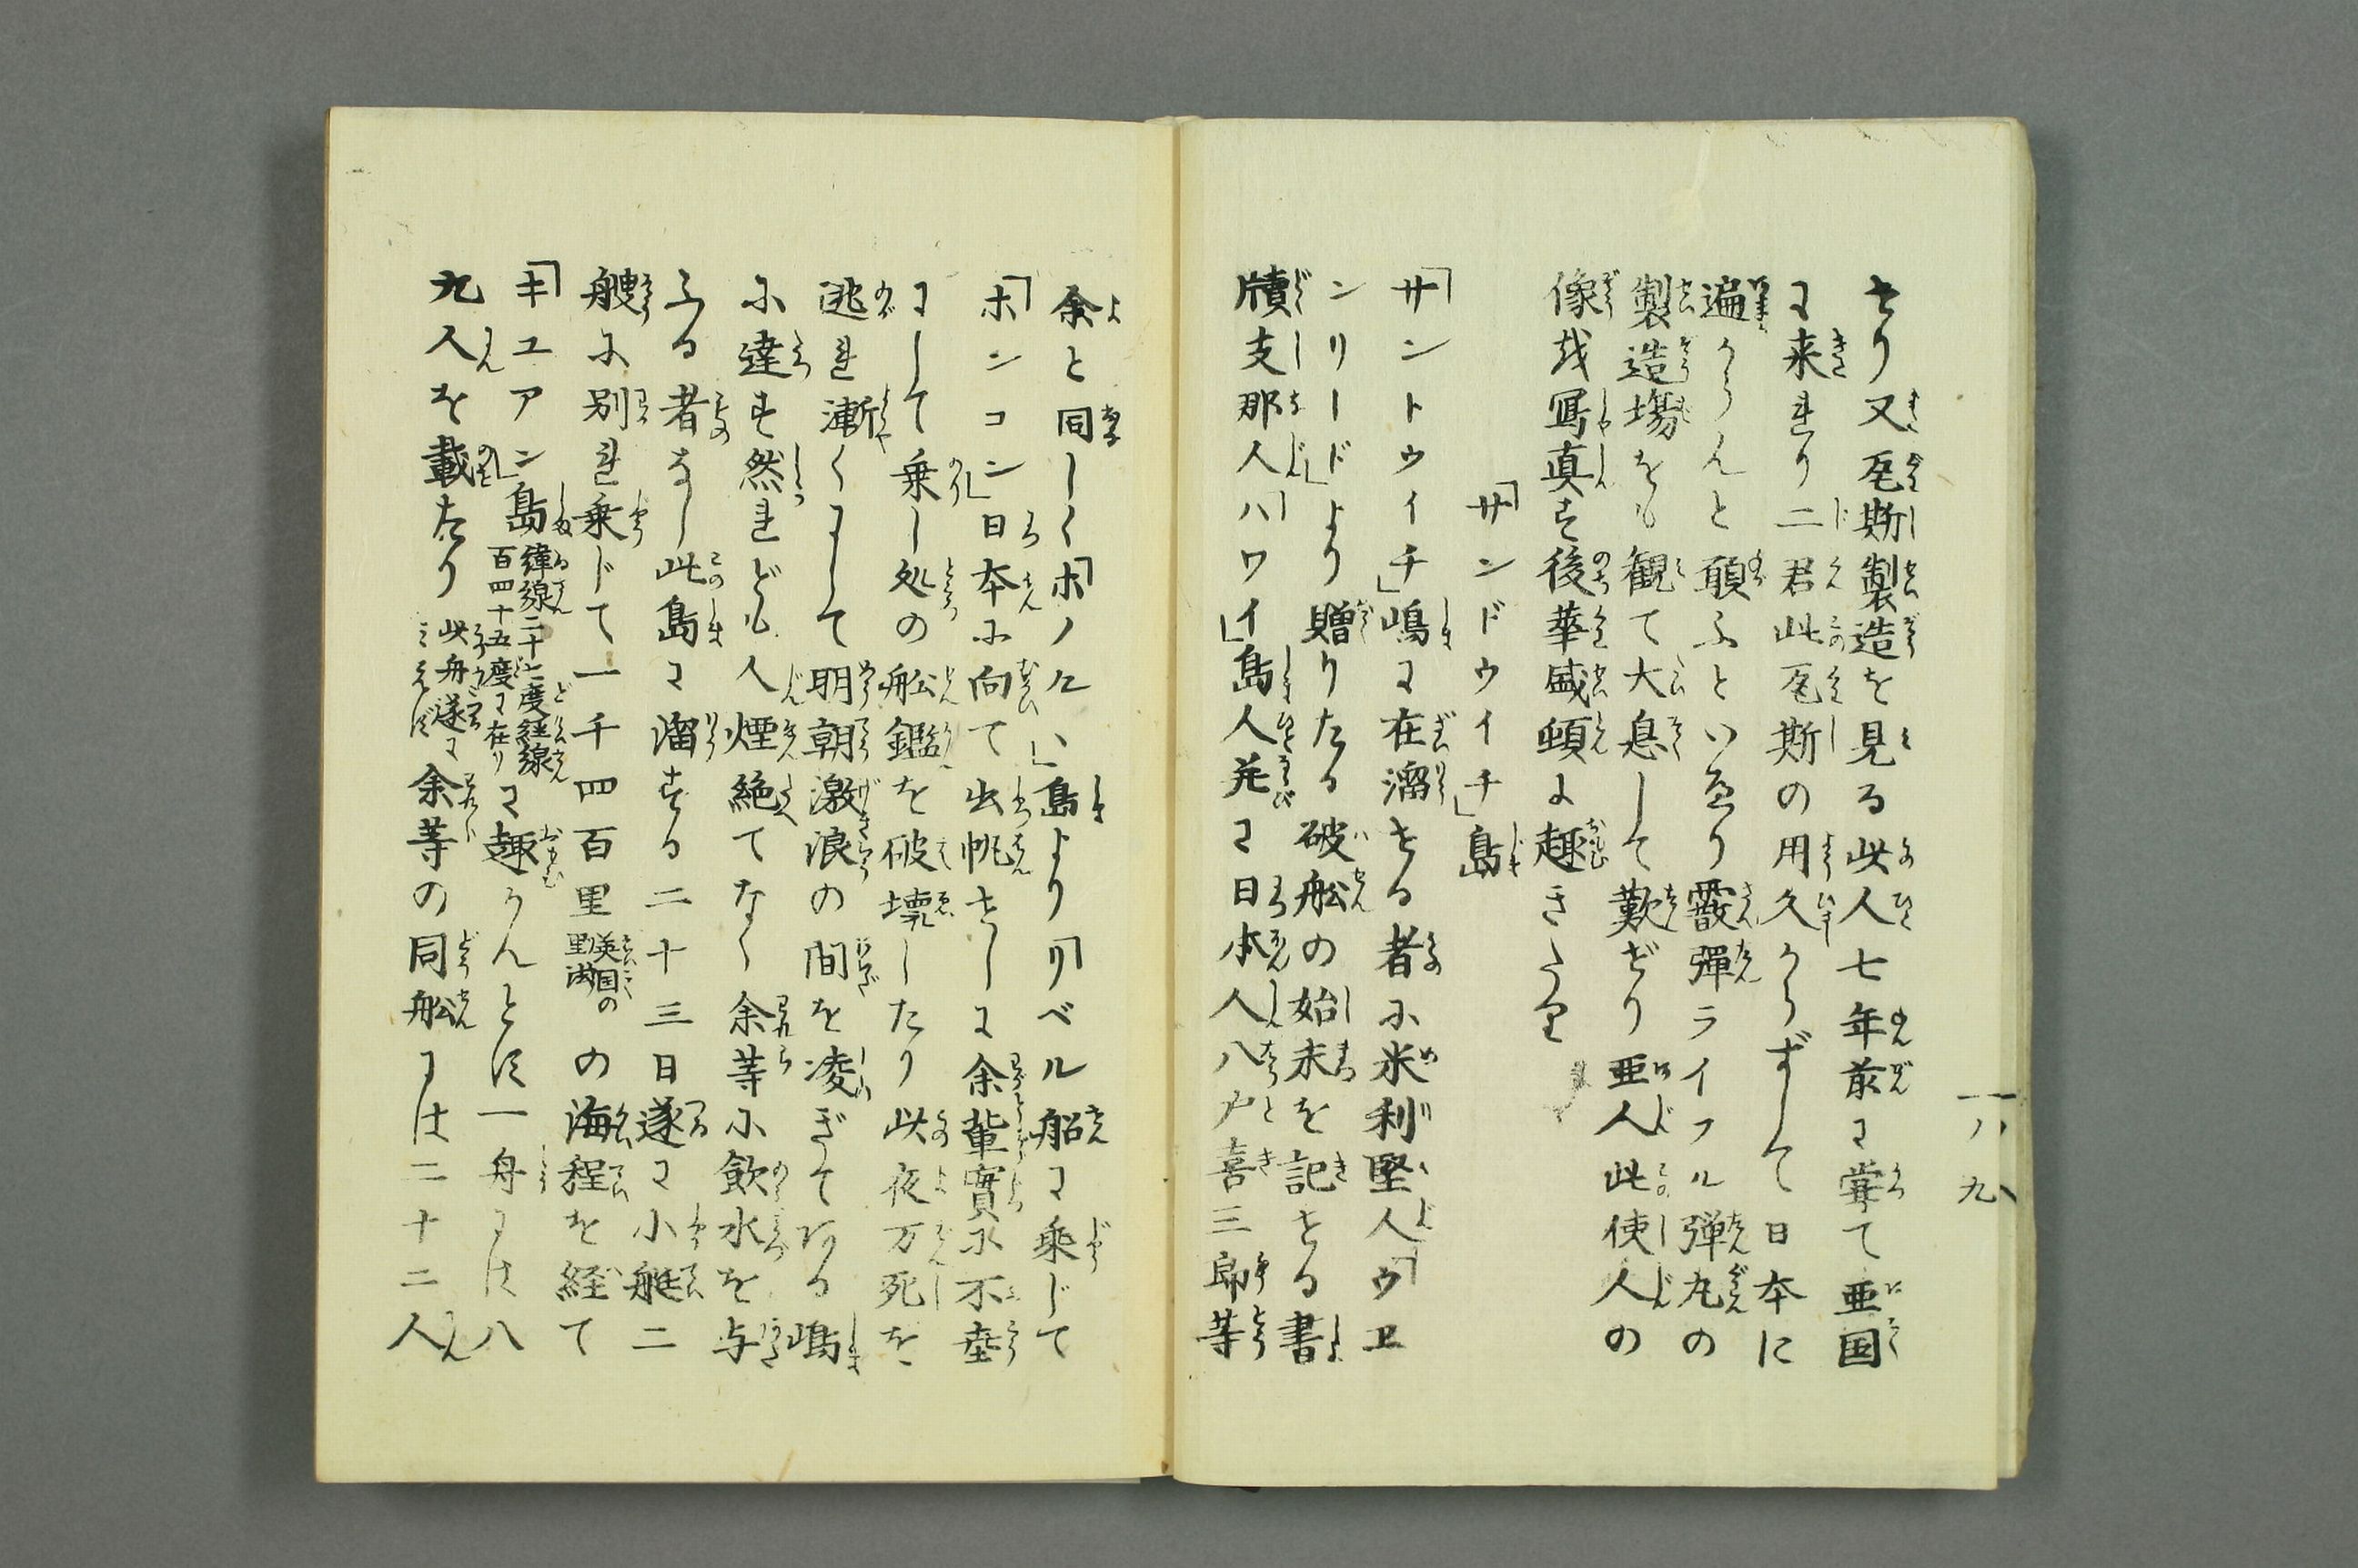 せり又瓦斯製造を見る此人七年前に嘗て亜国
に来れり二君此瓦斯の用久からずして日本に
遍からんと願ふといへり霰弾ライフル弾丸の
製造場をも観て大息して歎ぜり亜人此使人の
像を写真す後華盛頓に趣きたり
「サンドウイチ」島
「サントウイチ」嶋に在溜せる者に米利堅人「ウエ
ンリード」より贈りたる破舩の始末を記せる書
牘支那人「ハワイ」島人并に日本人八戸喜三郎等
一八九
余と同しく「ホノルヽ」島より「リベル船に乗じて
「ホンコン」日本に向て出帆せしに余輩實に不幸
にして乗し処の舩鑑を破壊したり此夜万死を
逃れ漸くにして明朝激浪の間を凌ぎてある嶋
に達す然れども人煙絶てなく余等に飲水を与
ふる者なし此島に溜する二十三日遂に小艇二
艘に別れ乗じて一千四百里英国の里法の海程を経て
「キユアン」島緯線二十七度経線百四十五度に在りに趣かんとす一舟には八
九人を載たり此舟遂にみえず余等の同舩には二十二人